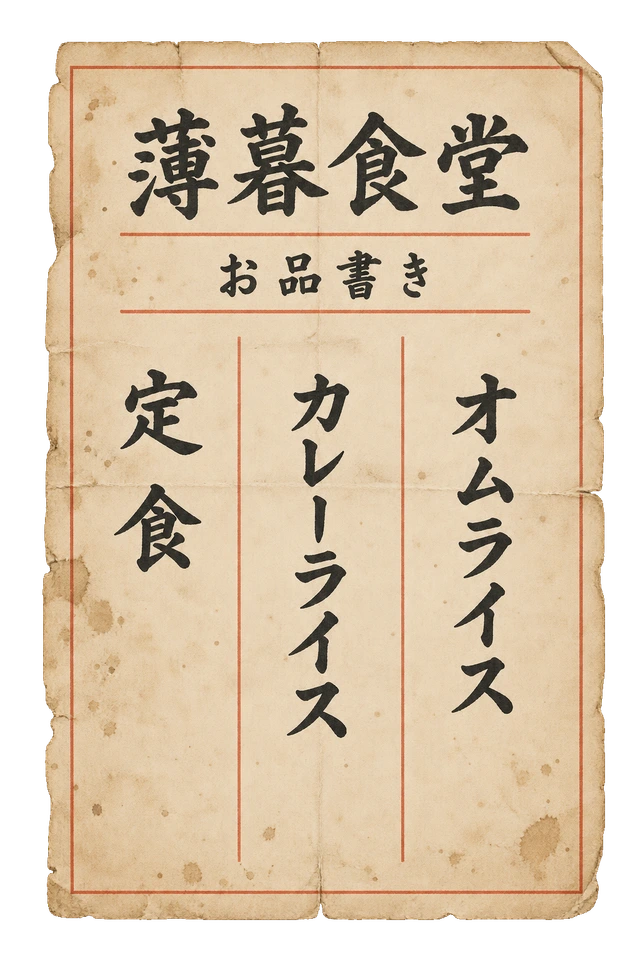 薄暮食堂
お品書き
オムライス
カレーライス
定食